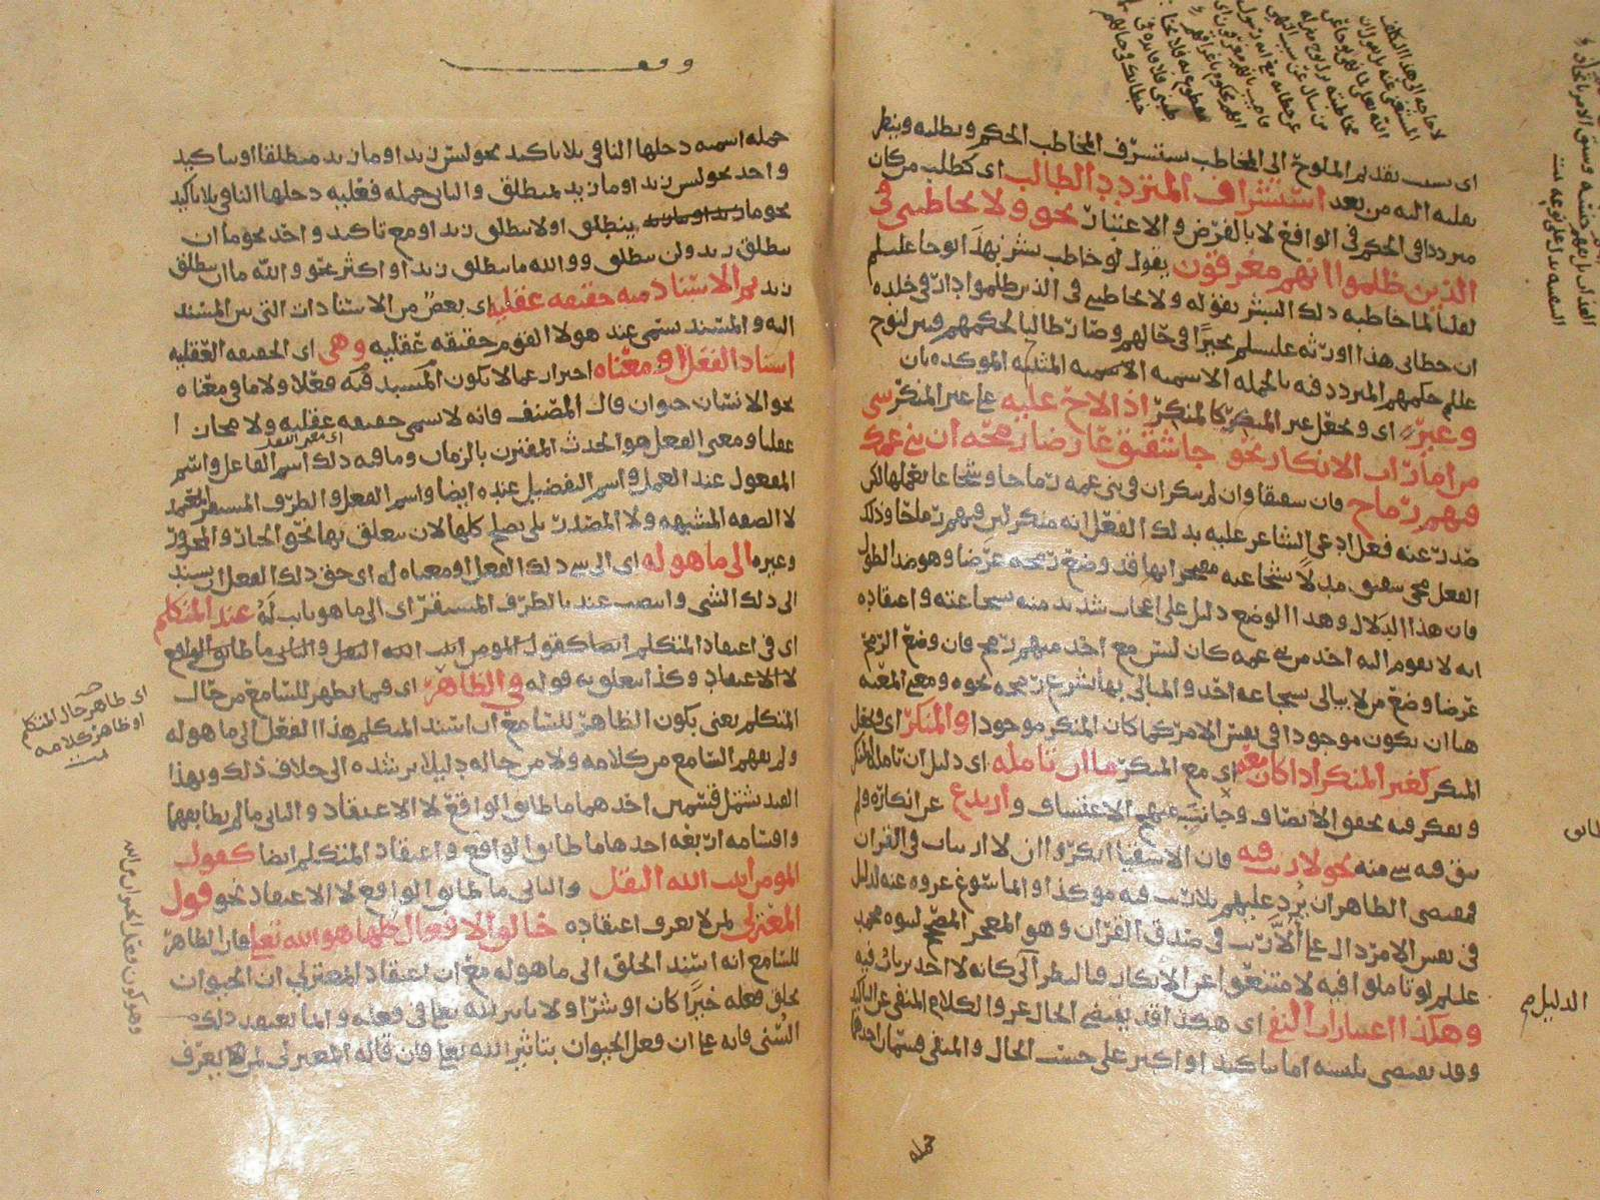 اى بسبب تقديم الملوح الى المخاطب يستشرف المخاطب الحكم ويطلبه وينظر
يطلبه اليه من بعد استشراف المتردد الطالب اى كطلب من كان
مترددا فى الحكم فى الواقع لا بالفرض والاعتبار نحو ولا تخاطبنى فى
الذين ظلموا انهم مغرقون يقول لو خاطب بشر بهذا نوحا عليلم
لقلنا لما خاطبه ذلك البشر بقوله ولا تخاطبنى فى الذين ظلموا دار فى خلده
ان خطابى هذا اورثه عليسلم تحيرا فى حالهم وصار طالبا لحكمهم فبين لنوح
عليلم حكمهم المتردد فيه بالجمله الاسميه الموكده بان
وغيره اى ويجعل غير المنكر كالمنكر اذا لاح عليه على غير المنكر شى
من امارات الانكار نحو جا شقيق عارضا رمحه ان بنى عمك
فيهم رماح فان شقيقا وان لم ينكر ان فى بنى عمه رماحا وشجاعا يعملها لكن
صدر عنه فعل ادعى الشاعر عليه بذلك الفعل انه منكر لئن فيهم رماحا وذلك
الفعل مجى شقيق مدلا شجاعته مفتخرا بها قد وضع رمحه عرضا وهو ضد الطول
فان هذا الدلال وهذا الوضع دليل على اعجاب شديد منه بشجاعته واعتقاده
انه لا يقوم اليه احد من بنى عمه كان ليس مع احد منهم رمح فان وضع الرمح
عرضا وضع من لا يبالى بشجاعه احد والمبالى بها شرع رمحه نحوه ومعنى المعيه
هنا ان يكون موجودا فى نفس الامر كما كان المنكر موجودا والمنكر اى ويجعل
المنكر كغير المنكر اذا كان معه اى مع المنكر ما ان تامله اى دليل ان تامله المنكر
وتفكر فيه بحقو الانصاف وجانب الاعتساف وارتدع عن انكاره ولم
يبق فيه شى منه نحو لا ريب فيه فان الاشقيا انكروا ان لا ارتياب فى القران
فمقتضى الظاهر ان يرد عليهم بلا ريب فيه موكدا وانما سوغ عروه عنه لدليل
فى نفس الامر دال على الا ريب فى صدق القران وهو المعجز المصحح لنبوه محمد
عليلم لو تاملوا فيه لامتنعوا عن الانكار فبالنظر الى كانه لا احد يرتاب فيه
وهكذا اعتبارات النفى اى هكذا قد يقتضى الحال عرو الكلام المنفى عن التاكيد
وقد يقتضى تلبسه اما بتاكيد او اكثر على حسب الحال والمنفى قسمان احدهما
جمله
الدليل
جمله اسميه دخلها النافى بلا تاكيد نحو ليس زيد او ما زيد منطلقا او بتاكيد
واحد نحو ليس زيد او ما زيد بمنطلق والثانى جمله فعليه دخلها النافى بلا تاكيد
نحو ما ينطلق او لا ينطلق زيد او مع تاكيد واحد نحو ما ان
ينطلق زيد ولن ينطلق ووالله ما ينطلق زيد او اكثر نحو والله ما ان ينطلق
زيد ثم الاسناد منه حقيقه عقليه اى بعض من الاسنادات التى بين المسند
اليه والمسند سمى عند هولا القوم حقيقه عقليه وهى اى الحقيقه العقليه
اسناد الفعل او معناه احتراز عما لا يكون المسند فيه فعلا ولا ما فى معناه
نحو الانسان حيوان قال المصنف فانه لا يسمى حقيقه عقليه ولا مجازا
عقليا ومعنى الفعل هو الحدث المقترن بالزمان وما فيه ذلك اسم الفاعل واسم
المفعول عند العمل واسم التفضيل عنده ايضا واسم الفعل والظرف المستقر المعتمد
لا الصفه المشبهه ولا المصدر بلى يصلح كلها لان يتعلق بها نحو الجار والمجرور
وغيره الى ما هو له اى الى شى ذلك الفعل او معناه له اى حق ذلك الفعل ان يسند
الى ذلك الشى وانتصب عند بالظرف المستقر اى الى ما هو ثابت له عند المتكلم
اى فى اعتقاد المتكلم ايضا كقول المومن انبت الله البقل والثانى ما طابق الواقع
لا الاعتقاد وكذا يتعلق به قوله فى الظاهر اى فيما يظهر للسامع من حال
المتكلم يعنى يكون الظاهر للسامع ان اسند المتكلم هذا الفعل الى ما هو له
ولم يفهم السامع من كلامه ولا من حاله دليلا يرشده الى خلاف ذلك وبهذا
القيد شمل قسمين احدهما ما طابق الواقع لا الاعتقاد والثانى ما لم يطابقهما
واقسامه اربعه احدها ما طابق الواقع واعتقاد المتكلم ايضا كقول
المومن انبت الله البقل والثانى ما طابق الواقع لا الاعتقاد نحو قول
المعتزلى لمن لا يعرف اعتقاده خالق الافعال كلها هو الله تعا فان الظاهر
للسامع انه اسند الخلق الى ما هو له مع ان اعتقاد المعتزلى ان الحيوان
يخلق فعله خيرا كان او شرا ولا تاثير لله تعا فى فعله وانما يعتقد ذلك
السنى فانه على ان فعل الحيوان بتاثير الله تعا فان قاله المعتزلى لمن لا يعرف
اى ظاهر حال المتكلم
او ظاهر كلامه